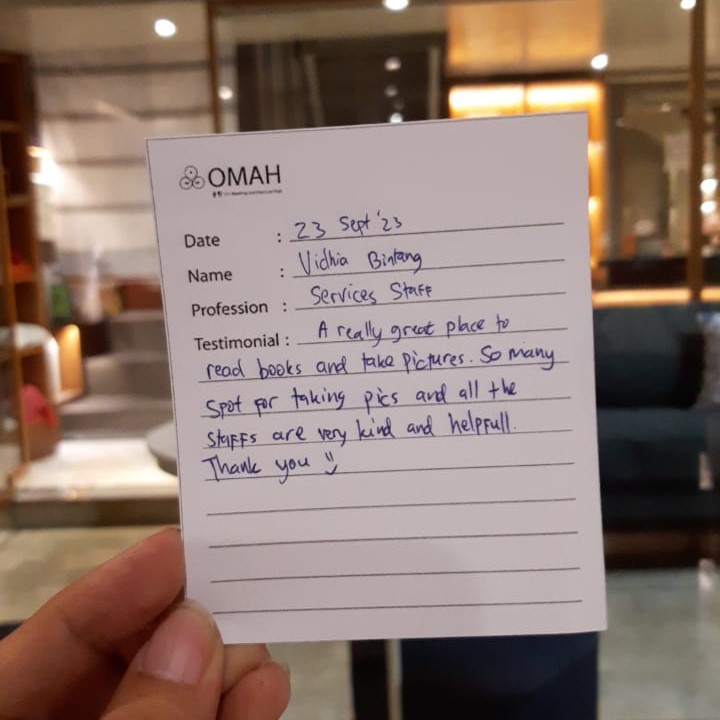 OMAH
Date : 23 Sept '23
Name : Vidhia Bintang
Profession : Services Staff
Testimonial : A really great place to
read books and take pictures. So many
spot for taking pics and all the
staffs are very kind and helpfull.
Thank you